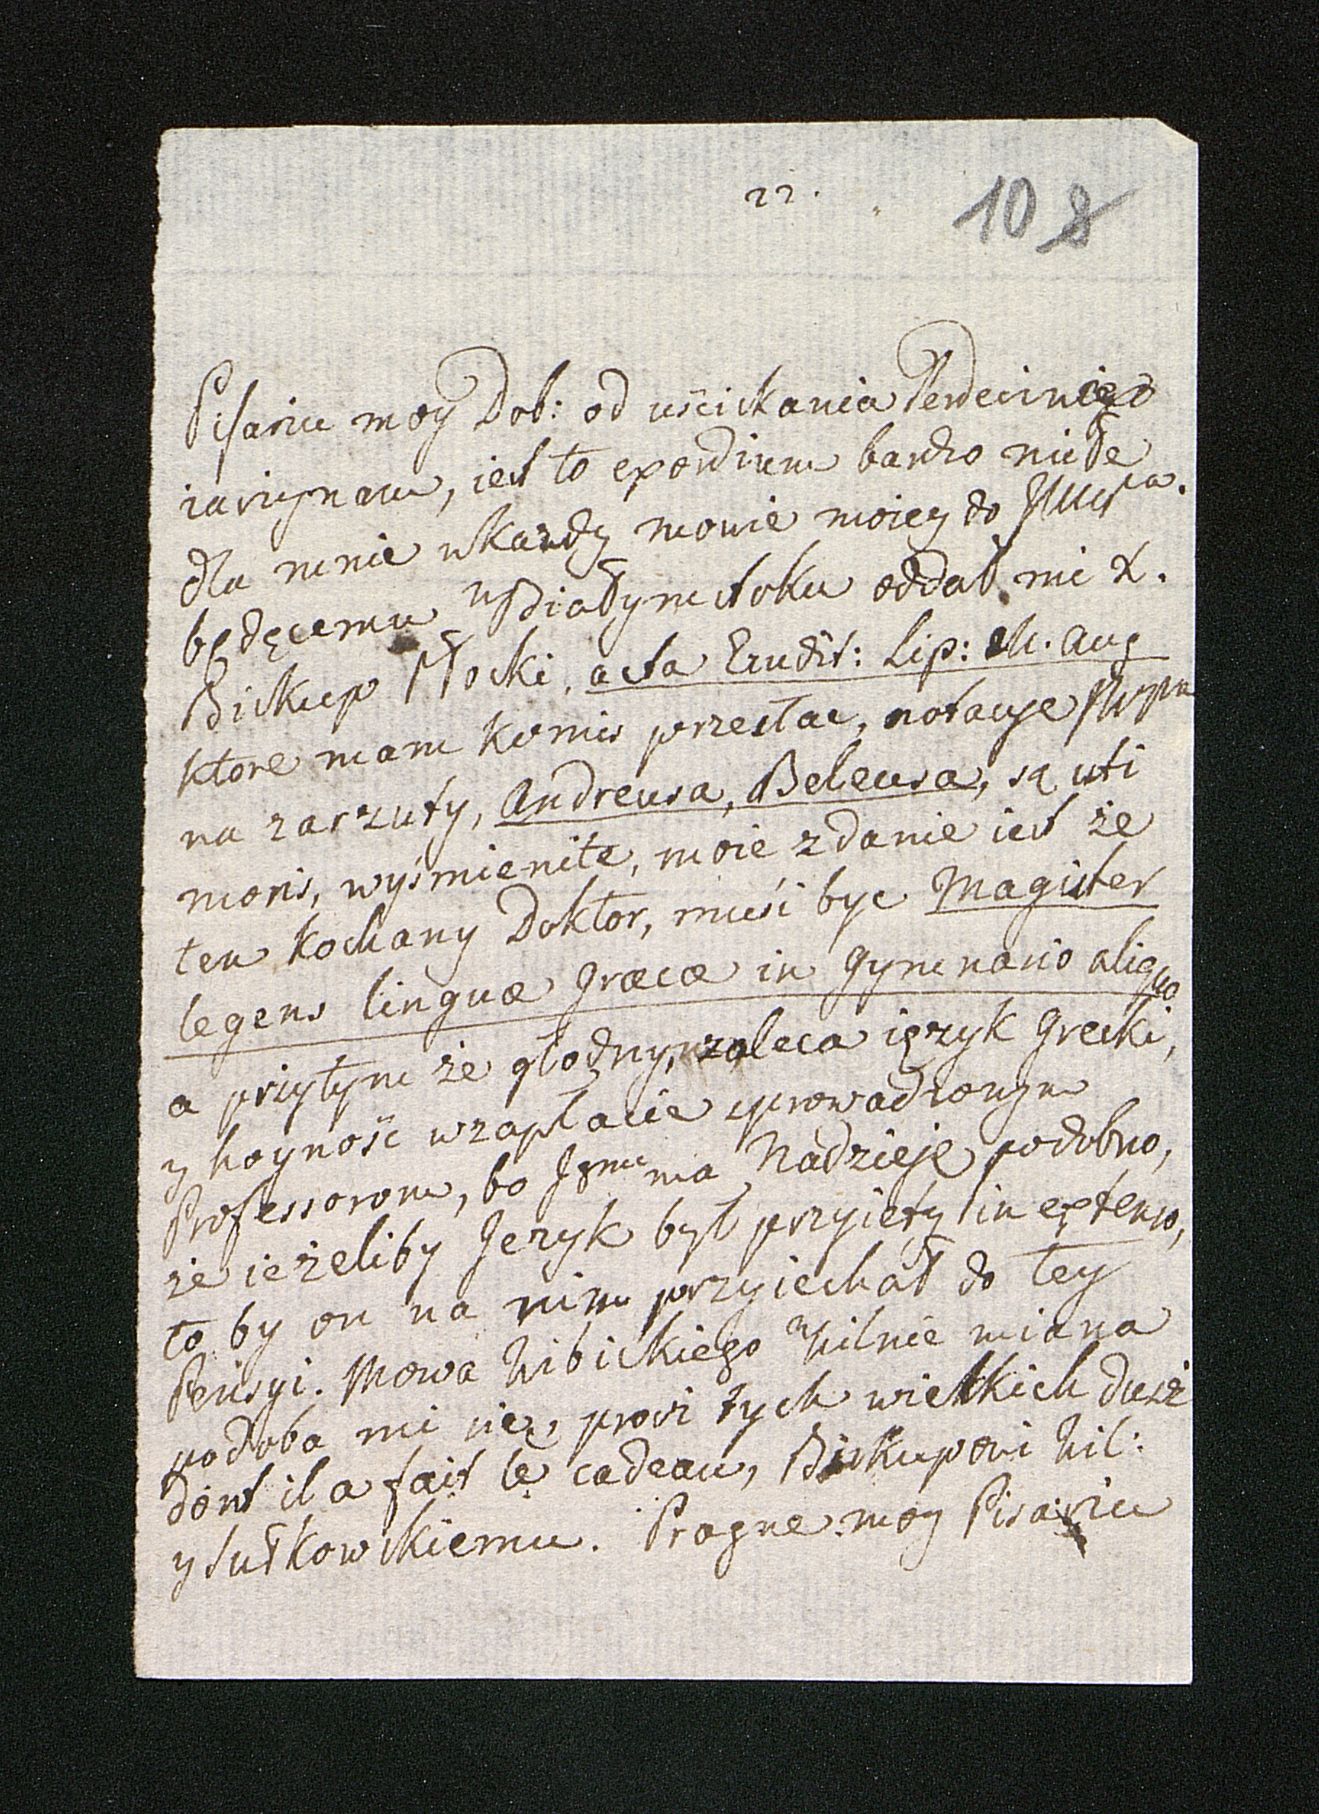 22.
108
Pisarzu moy Dob: od uściskania Serdecznego
zaczynam, iest to exordium bardzo miłe
dla mnie w każdy mowie moiey do
będęcemu w Białymstoku oddał mi X.
Biskup Płocki, acta Erudit: Lip: M. Aug
ktore mam komis przesłac, notacye
na zarzuty, Andreusa, Beleusa, są uti
moris, wyśmienite, moie zdanie iest że
ten kochany Doktor, musi byc Magister
legens linguæ Græcæ in Gymnasio aliquo
a przytym że głodny, zaleca ięzyk Grecki,
y hoyność w zapłacie sprowadzonym
Professorom, bo Jgmc ma Nadzieję podobno,
że ieżeliby Język był przyięty in extenso,
to by on na nim przyiechał do tey
Pensyi. Mowa Wibickiego w Wilnie miana
podoba mi się, procz tych wielkich dusz
dont il a fait le cadeau, Biskupowi Wil:
y Sułkowskiemu. Pragnę moy Pisarzu